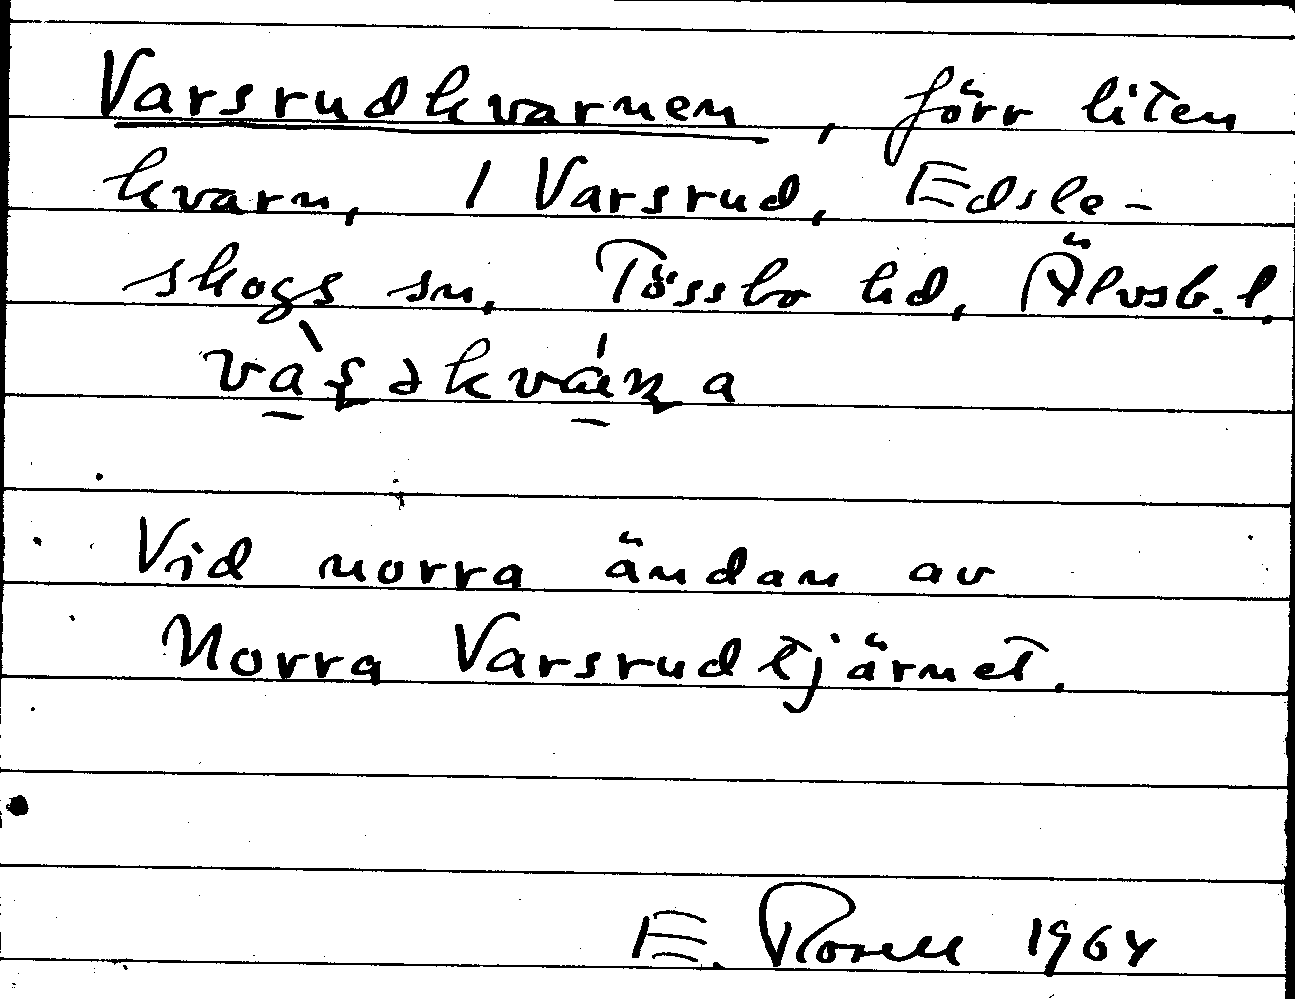 Varsrudkvarnen, förr liten
kvarn, 1 Varsrud, Edsle-
skogs sn, Tössbo hd, Älvsb. l.
Vid norra ändan av
Norra Varsrudtjärnet.
E. Rosell 1964